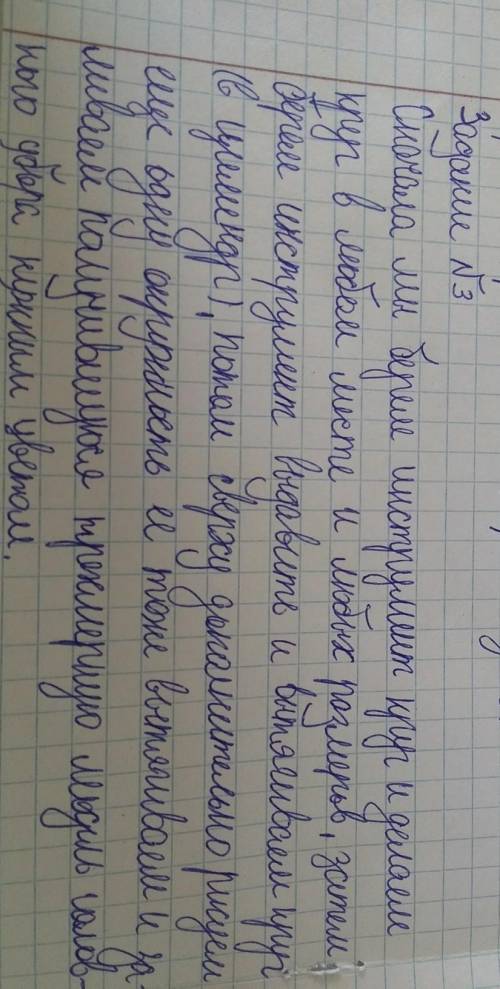 Задание №3
Сначала мы берем инструмент круг и делаем
круг в любом месте и любых размеров, затем
берем инструмент выдавить и вытягиваем круг
(в цилиндр), потом сверху дополнительно рисуем
еще одну окружность ее тоже вытягиваем и за-
ливаем получившуюся трехмерную модель голов-
ного убора нужным цветом.